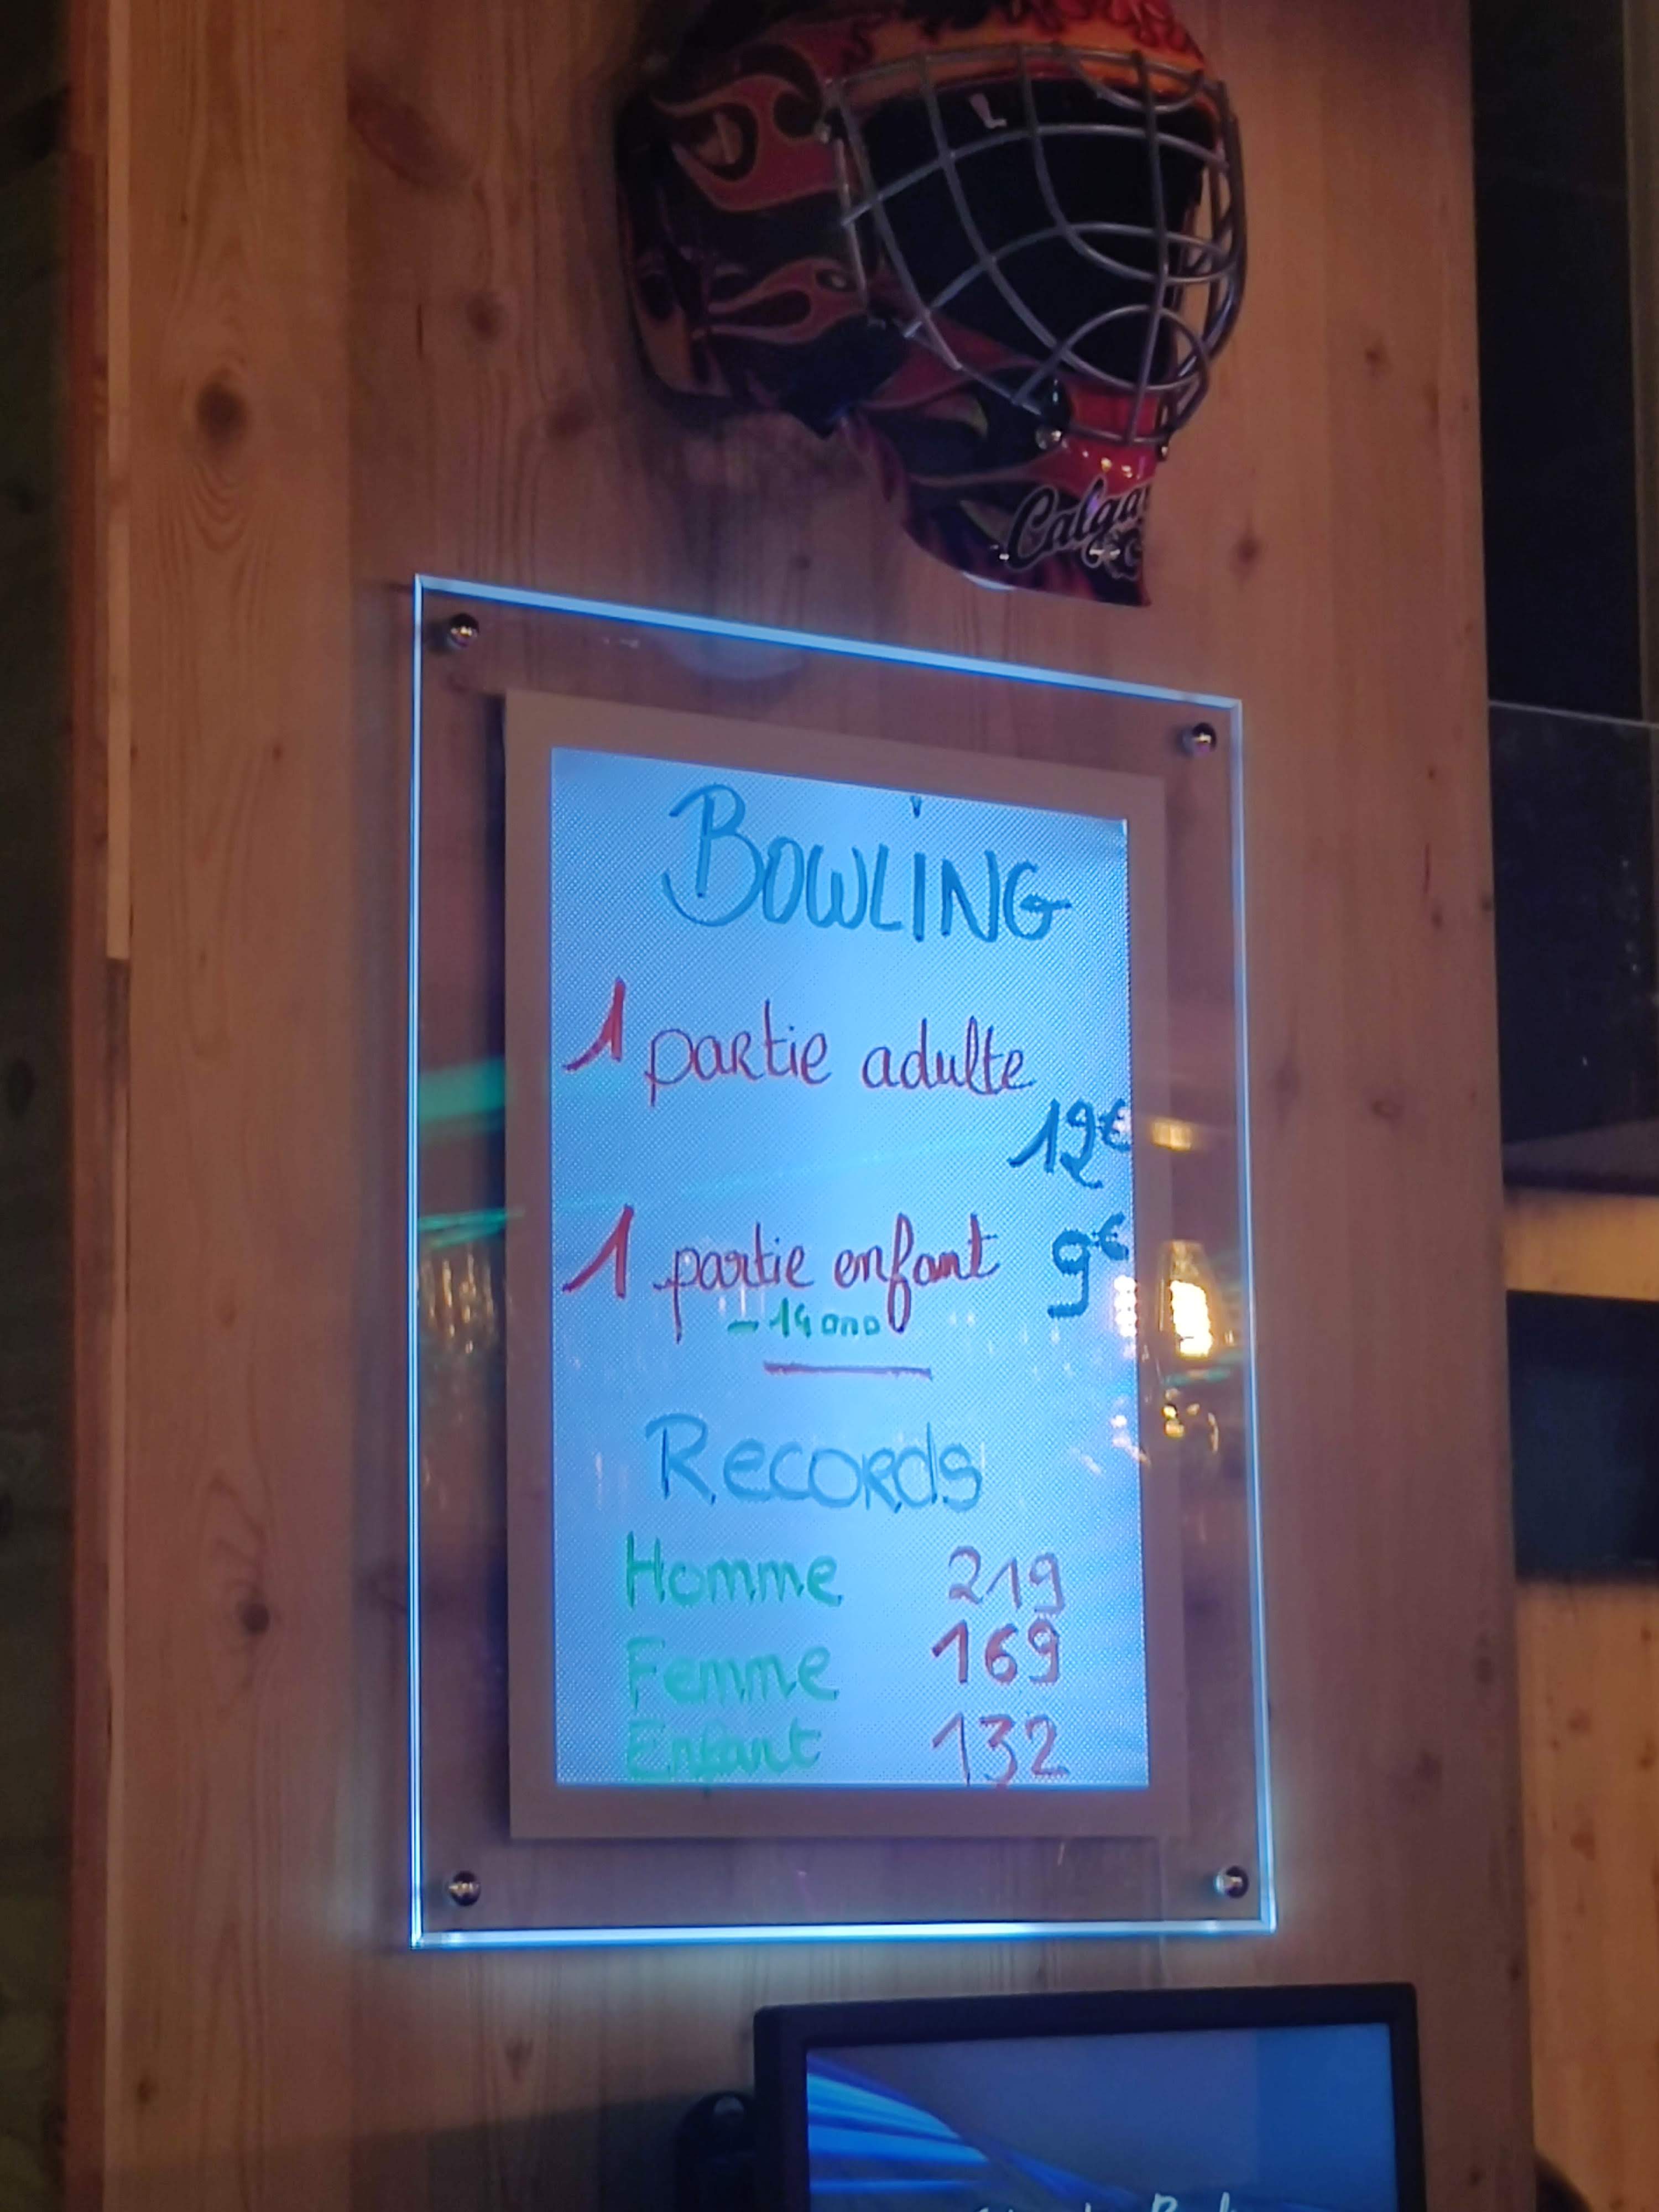 Calga
BOWLING
1 partie adulte
12€
1 partie enfant 9€
- 14 ans
Records
Homme 219
Femme 169
Enfant 132